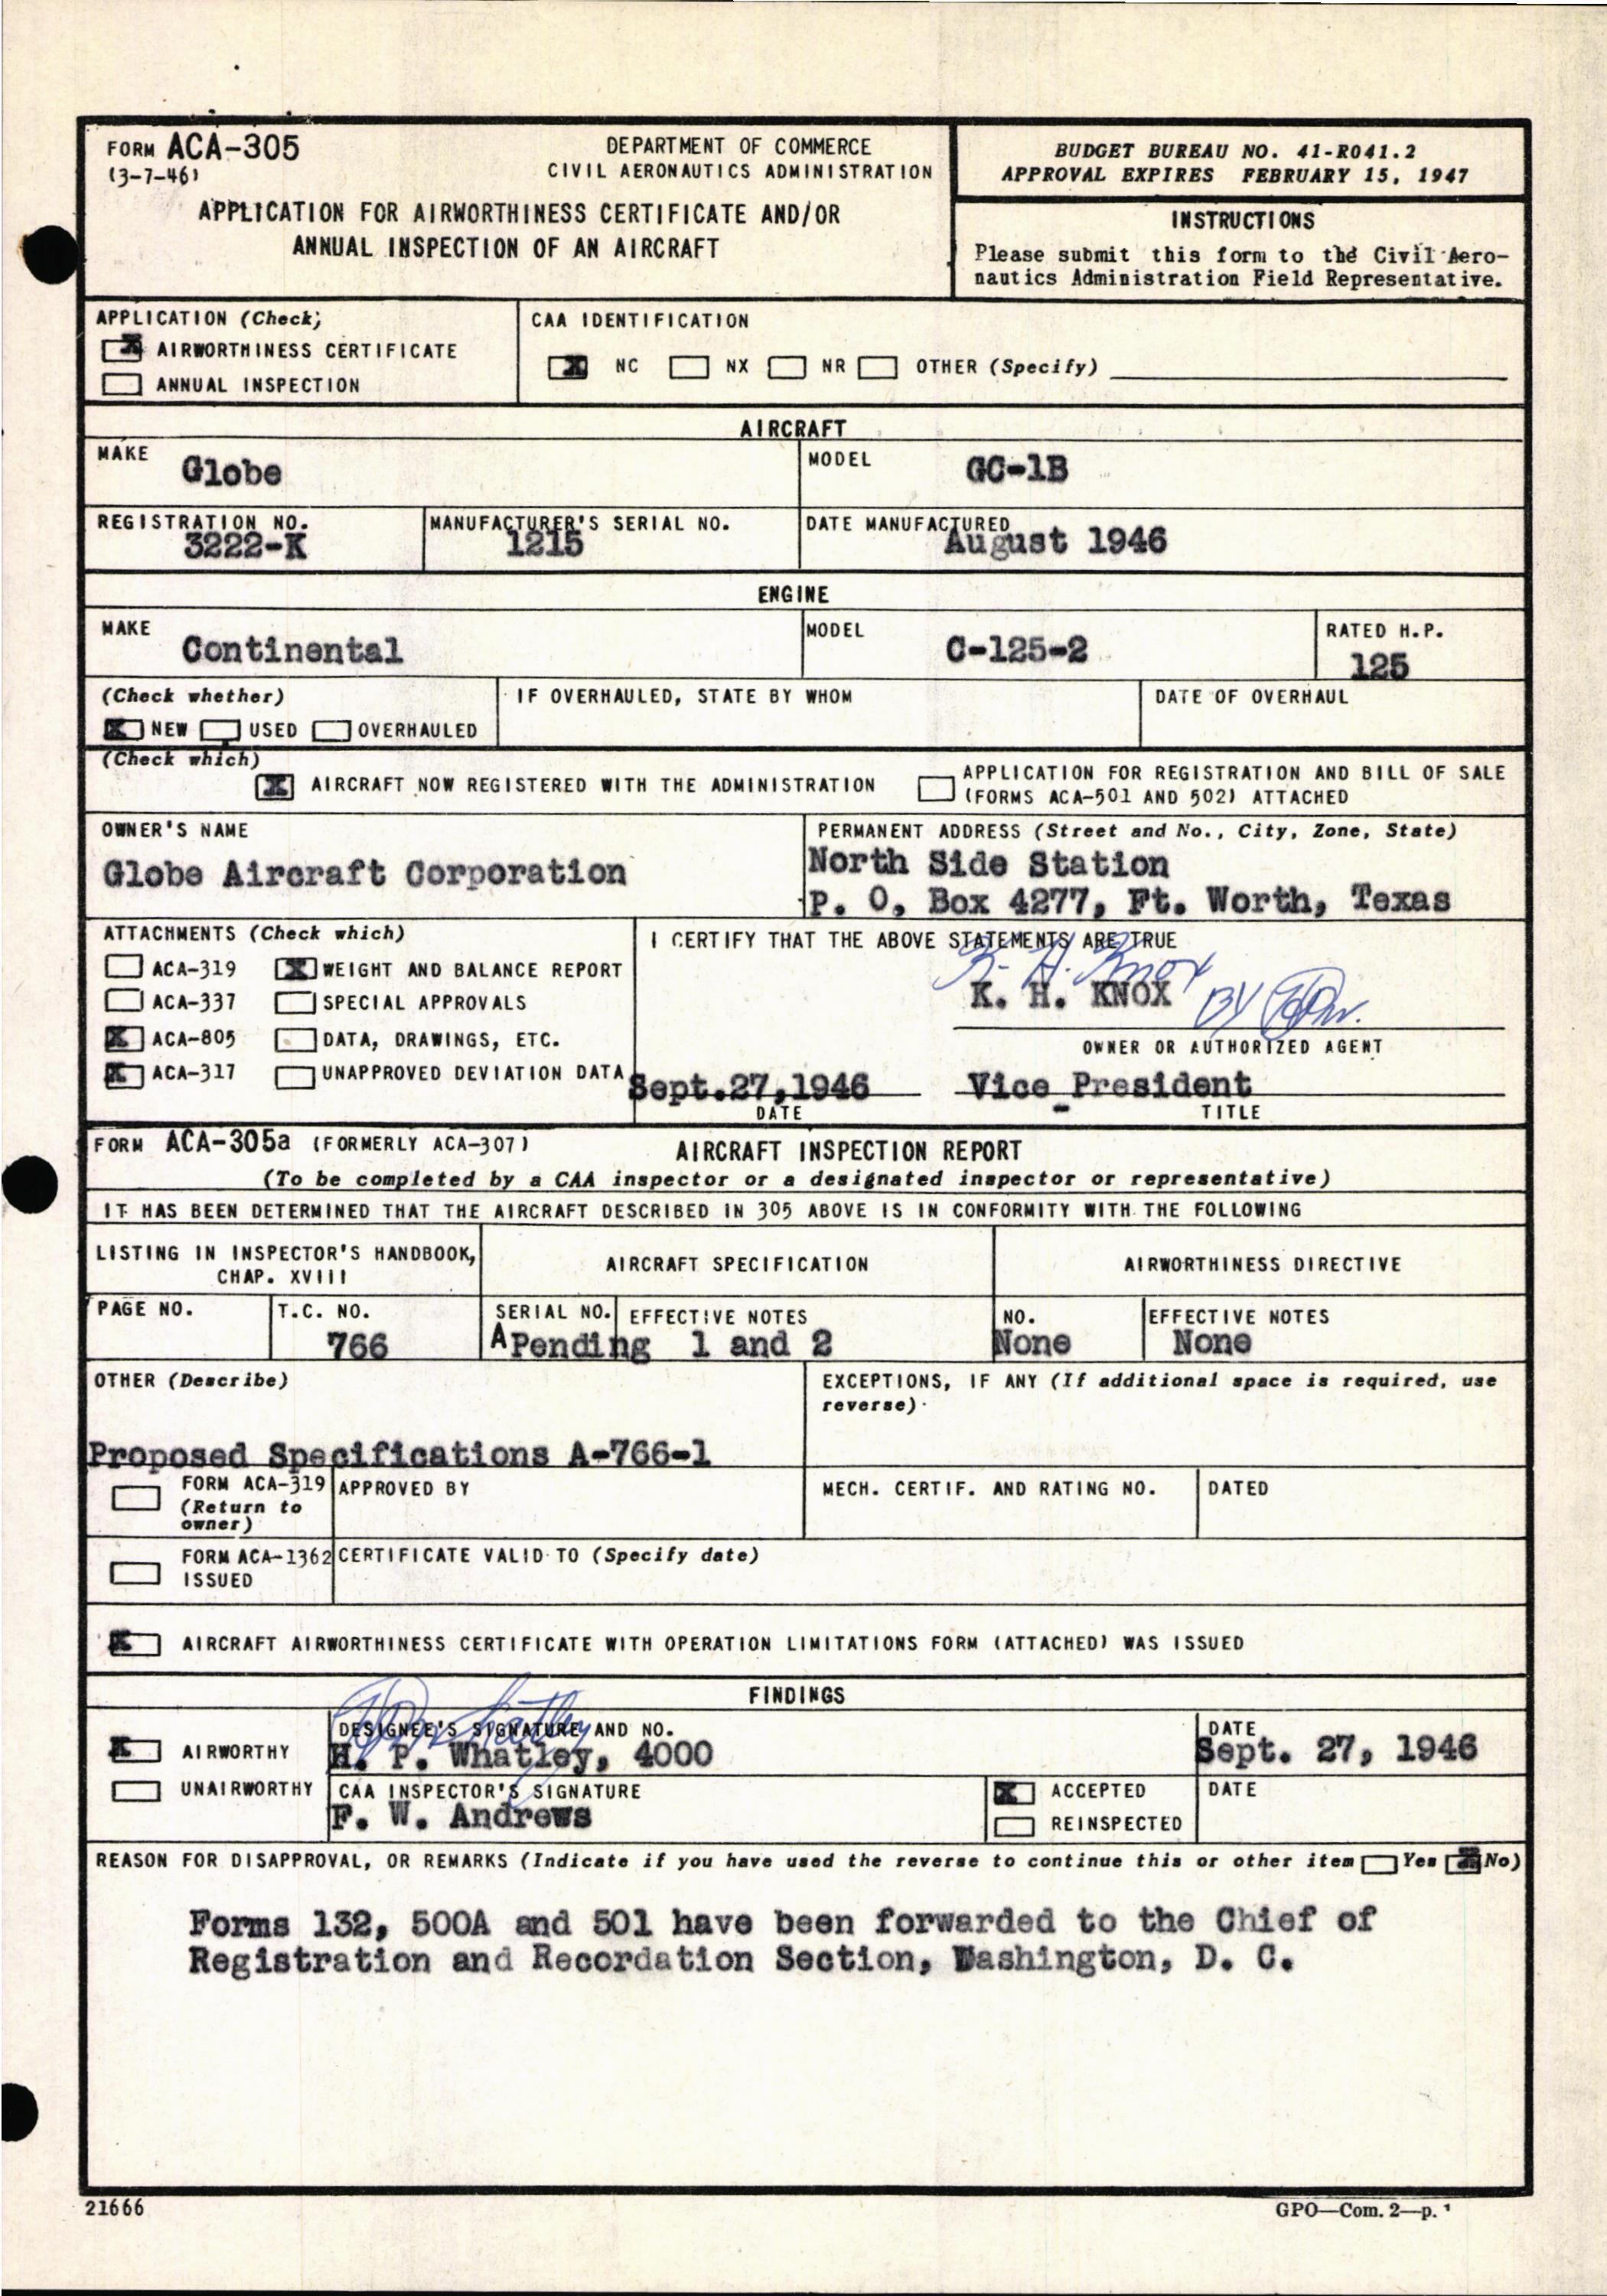 FORM ACA-305
(3-7-46)
DEPARTMENT OF COMMERCE
CIVIL AERONAUTICS ADMINISTRATION
APPLICATION FOR AIRWORTHINESS CERTIFICATE AND/OR
ANNUAL INSPECTION OF AN AIRCRAFT
BUDGET BUREAU NO. 41-R041.2
APPROVAL EXPIRES FEBRUARY 15, 1947
INSTRUCTIONS
Please submit this form to the Civil Aero-
nautics Administration Field Representative.
APPLICATION (Check)
X AIRWORTHINESS CERTIFICATE
ANNUAL INSPECTION
CAA IDENTIFICATION
X NC NX NR OTHER (Specify)
AIRCRAFT
MAKE
Globe
MODEL
GC-1B
REGISTRATION NO.
3222-K
MANUFACTURER'S SERIAL NO.
1215
DATE MANUFACTURED
August 1946
ENGINE
MAKE
Continental
MODEL
C-125-2
RATED H.P.
125
(Check whether)
X NEW USED OVERHAULED
IF OVERHAULED, STATE BY WHOM
DATE OF OVERHAUL
(Check which)
X AIRCRAFT NOW REGISTERED WITH THE ADMINISTRATION
APPLICATION FOR REGISTRATION AND BILL OF SALE
(FORMS ACA-501 AND 502) ATTACHED
OWNER'S NAME
Globe Aircraft Corporation
PERMANENT ADDRESS (Street and No., City, Zone, State)
North Side Station
P. O. Box 4277, Ft. Worth, Texas
ATTACHMENTS (Check which)
ACA-319 X WEIGHT AND BALANCE REPORT
ACA-337 SPECIAL APPROVALS
X ACA-805 DATA, DRAWINGS, ETC.
X ACA-317 UNAPPROVED DEVIATION DATA
I CERTIFY THAT THE ABOVE STATEMENTS ARE TRUE
K. H. Knox
K. H. KNOX BY
OWNER OR AUTHORIZED AGENT
Sept.27,1946 Vice President
DATE TITLE
FORM ACA-305a (FORMERLY ACA-307) AIRCRAFT INSPECTION REPORT
(To be completed by a CAA inspector or a designated inspector or representative)
IT HAS BEEN DETERMINED THAT THE AIRCRAFT DESCRIBED IN 305 ABOVE IS IN CONFORMITY WITH THE FOLLOWING
LISTING IN INSPECTOR'S HANDBOOK,
CHAP. XVIII
AIRCRAFT SPECIFICATION
AIRWORTHINESS DIRECTIVE
PAGE NO.
T.C. NO.
766
SERIAL NO. EFFECTIVE NOTES
A Pending 1 and 2
NO.
None
EFFECTIVE NOTES
None
OTHER (Describe)
Proposed Specifications A-766-1
EXCEPTIONS, IF ANY (If additional space is required, use
reverse)
FORM ACA-319
(Return to
owner)
APPROVED BY
MECH. CERTIF. AND RATING NO.
DATED
FORM ACA-1362
ISSUED
CERTIFICATE VALID TO (Specify date)
X AIRCRAFT AIRWORTHINESS CERTIFICATE WITH OPERATION LIMITATIONS FORM (ATTACHED) WAS ISSUED
FINDINGS
X AIRWORTHY
UNAIRWORTHY
DESIGNEE'S SIGNATURE AND NO.
H. P. Whatley, 4000
DATE
Sept. 27, 1946
CAA INSPECTOR'S SIGNATURE
F. W. Andrews
X ACCEPTED
REINSPECTED
DATE
REASON FOR DISAPPROVAL, OR REMARKS (Indicate if you have used the reverse to continue this or other item Yes X No)
Forms 132, 500A and 501 have been forwarded to the Chief of
Registration and Recordation Section, Washington, D. C.
21666
GPO—Com. 2—p.